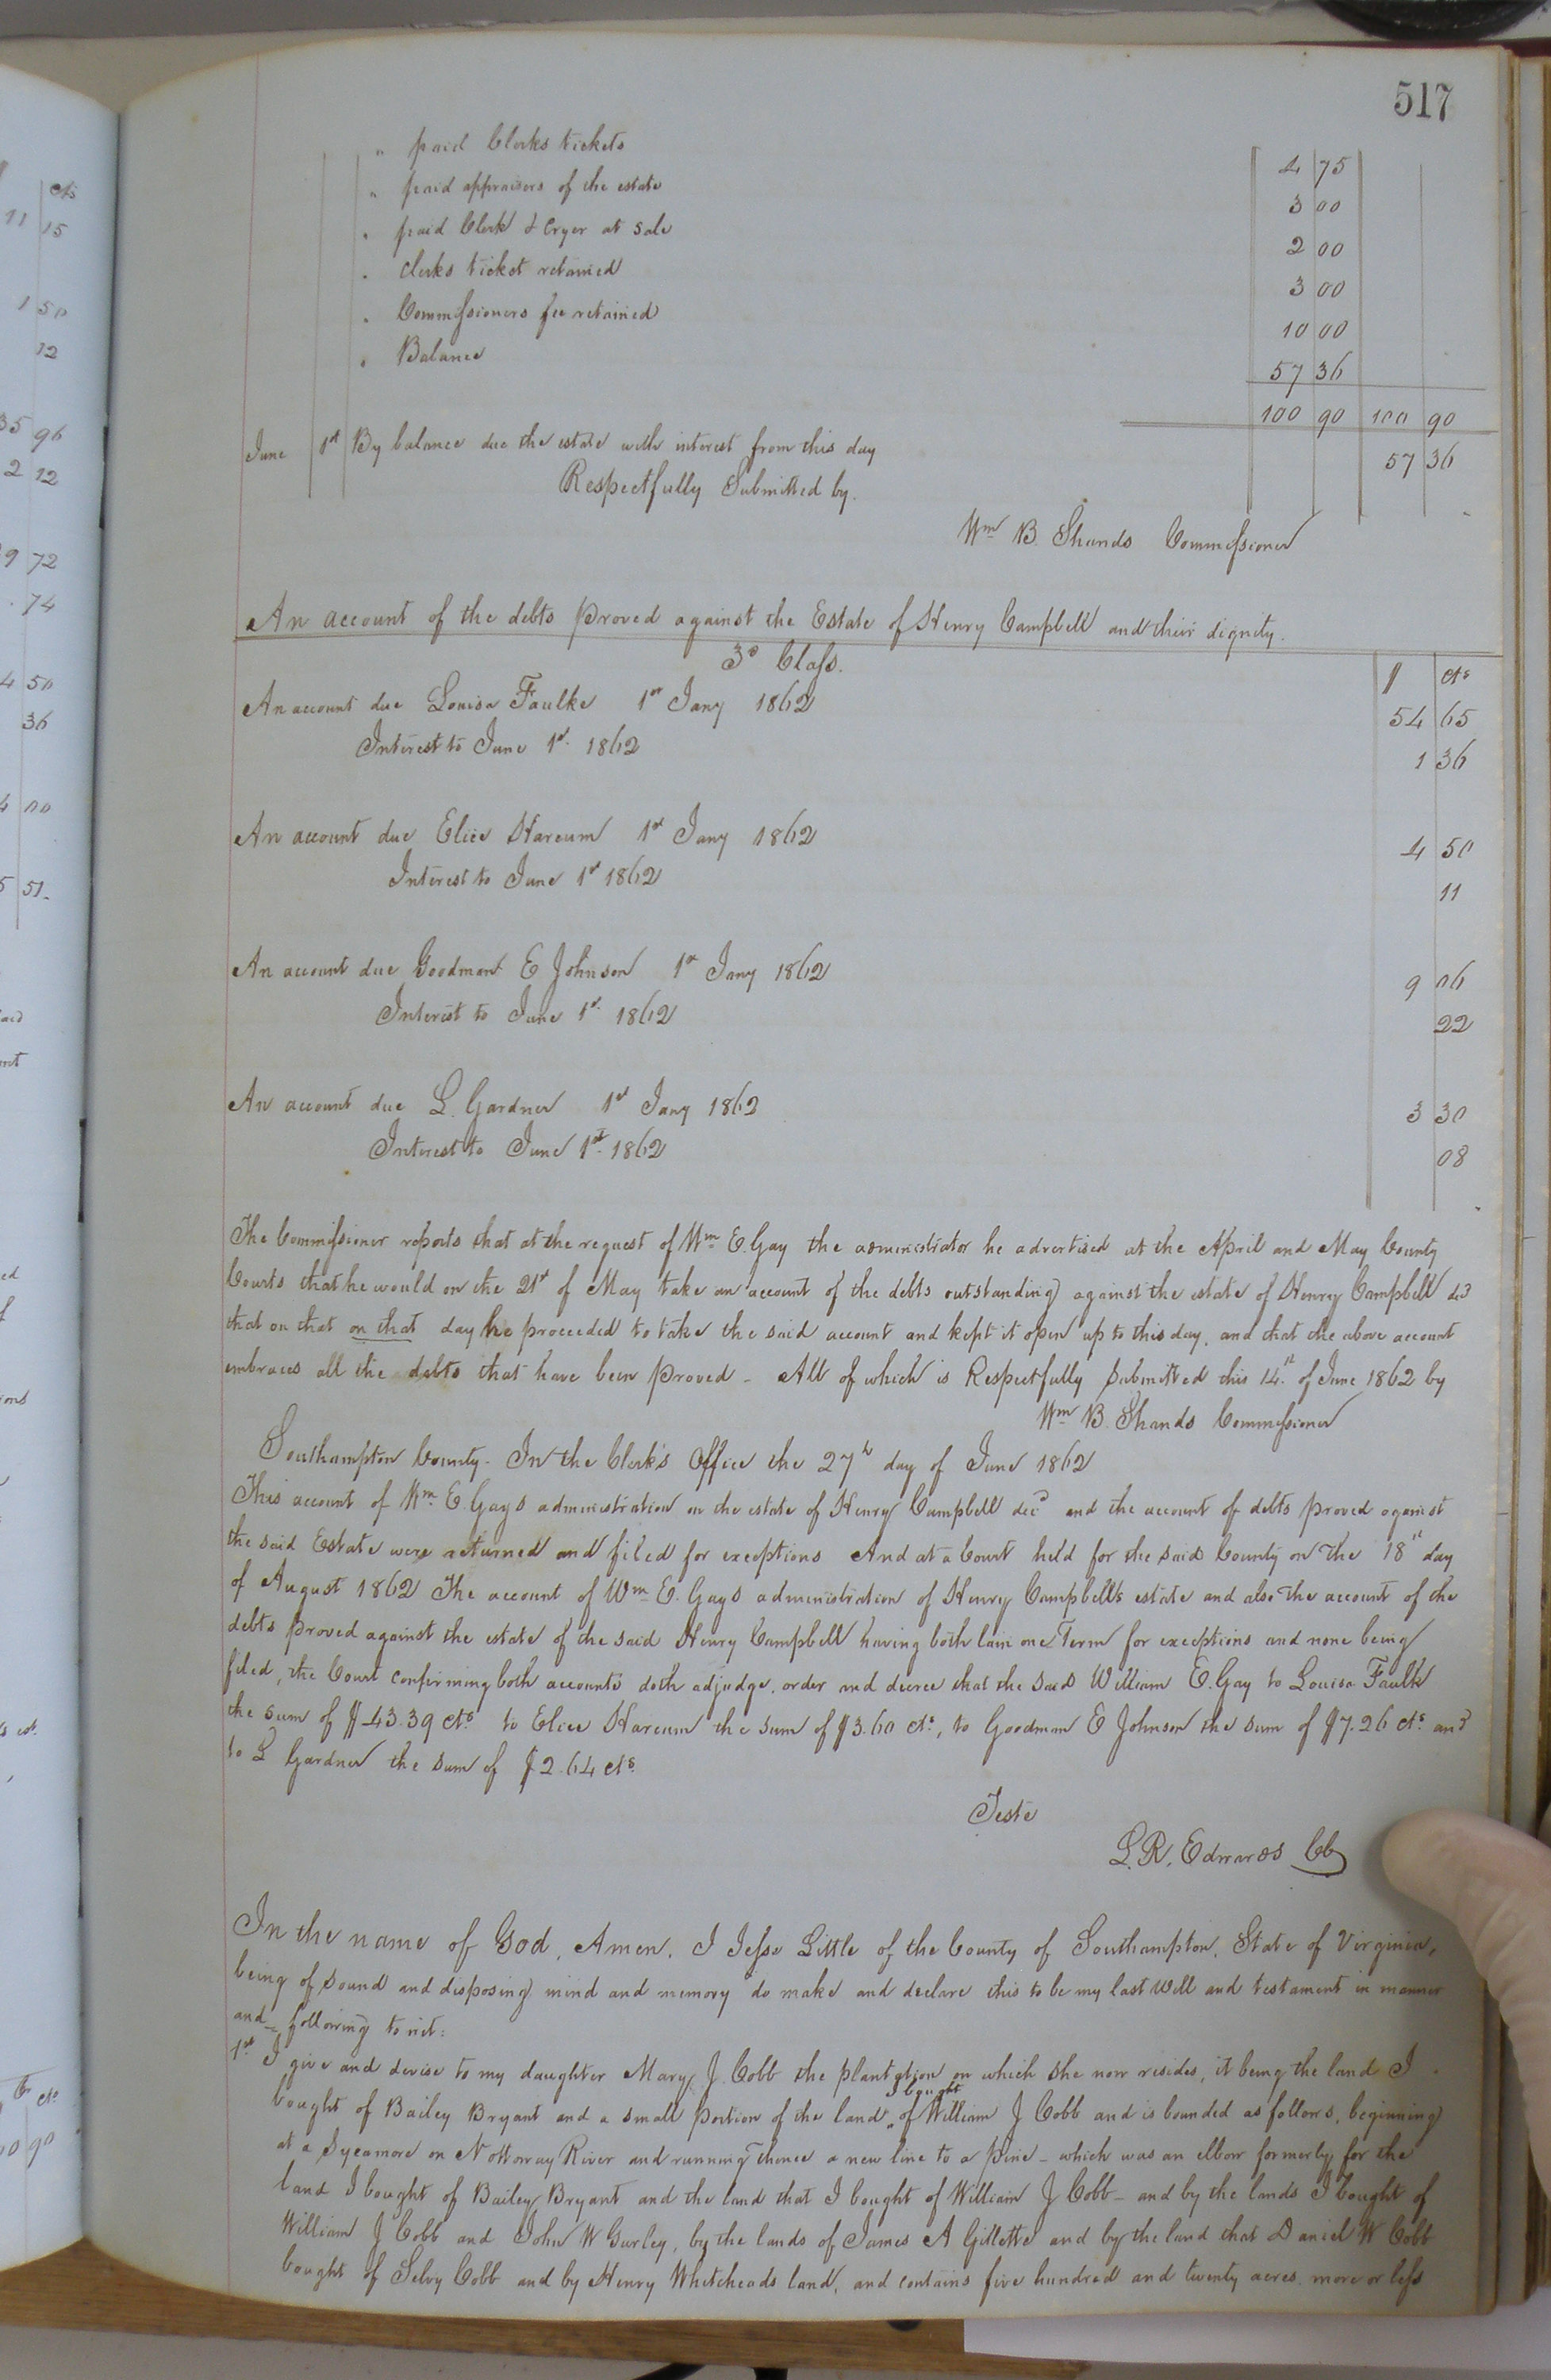 517
" paid Clerks tickets 4 75
" paid appraisers of the estate 3 00
" paid Clerk & Cryer at sale 2 00
" Clerks ticket retained 3 00
" Commissioners fee retained 10 00
" Balance 57 36
100 90 100 90
June 1st By balance due the estate with interest from this day 57 36
Respectfully Submitted by.
Wm B. Shands Commissioner
An account of the debts proved against the Estate of Henry Campbell and their dignity.
3d Class.
$ cts
An account due Louisa Faulke 1st Jany 1862 54 65
Interest to June 1st 1862 1 36
An account due Elice Harcum 1st Jany 1862 4 50
Interest to June 1st 1862 11
An account due Goodman E Johnson 1st Jany 1862 9 06
Interest to June 1st 1862 22
An account due L. Gardner 1st Jany 1862 3 30
Interest to June 1st 1862 08
The Commissioner reports that at the request of Wm E. Gay the administrator he advertised at the April and May County
Courts that he would on the 21st of May take an account of the debts outstanding against the estate of Henry Campbell decd
that on that on that day he proceeded to take the said account and kept it open up to this day, and that the above account
embraces all the debts that have been proved - All of which is Respectfully submitted this 14th of June 1862 by
Wm B. Shands Commissioner
Southampton County - In the Clerk's Office the 27th day of June 1862
This account of Wm E. Gays administration on the estate of Henry Campbell decd and the account of debts proved against
the said Estate were returned and filed for exceptions And at a Court held for the said County on the 18th day
of August 1862 The account of Wm E. Gays administration of Henry Campbells estate and also the account of the
debts proved against the estate of the said Henry Campbell having both lain one Term for exceptions and none being
filed, the Court confirming both accounts doth adjudge, order and decree that the said William E. Gay to Louisa Faulk
the sum of $43.39 cts to Elice Harcum the sum of $3.60 cts, to Goodman E Johnson the sum of $7.26 cts and
to L Gardner the sum of $2.64 cts.
Teste
L. R. Edwards CC
In the name of God, Amen. I Jesse Little of the County of Southampton, State of Virginia,
being of sound and disposing mind and memory do make and declare this to be my last Will and testament in manner
and following to wit:
1st I give and devise to my daughter Mary J. Cobb the plantation on which she now resides, it being the land I
bought of Bailey Bryant and a small portion of the land I bought of William J Cobb and is bounded as follows, beginning
at a Sycamore on Nottoway River and running thence a new line to a pine - which was an elbow formerly for the
land I bought of Bailey Bryant and the land that I bought of William J Cobb - and by the lands I bought of
William J Cobb and John W Gurley, by the lands of James A Gillette and by the land that Daniel W Cobb
bought of Selvy Cobb and by Henry Whiteheads land, and contains five hundred and twenty acres more or less